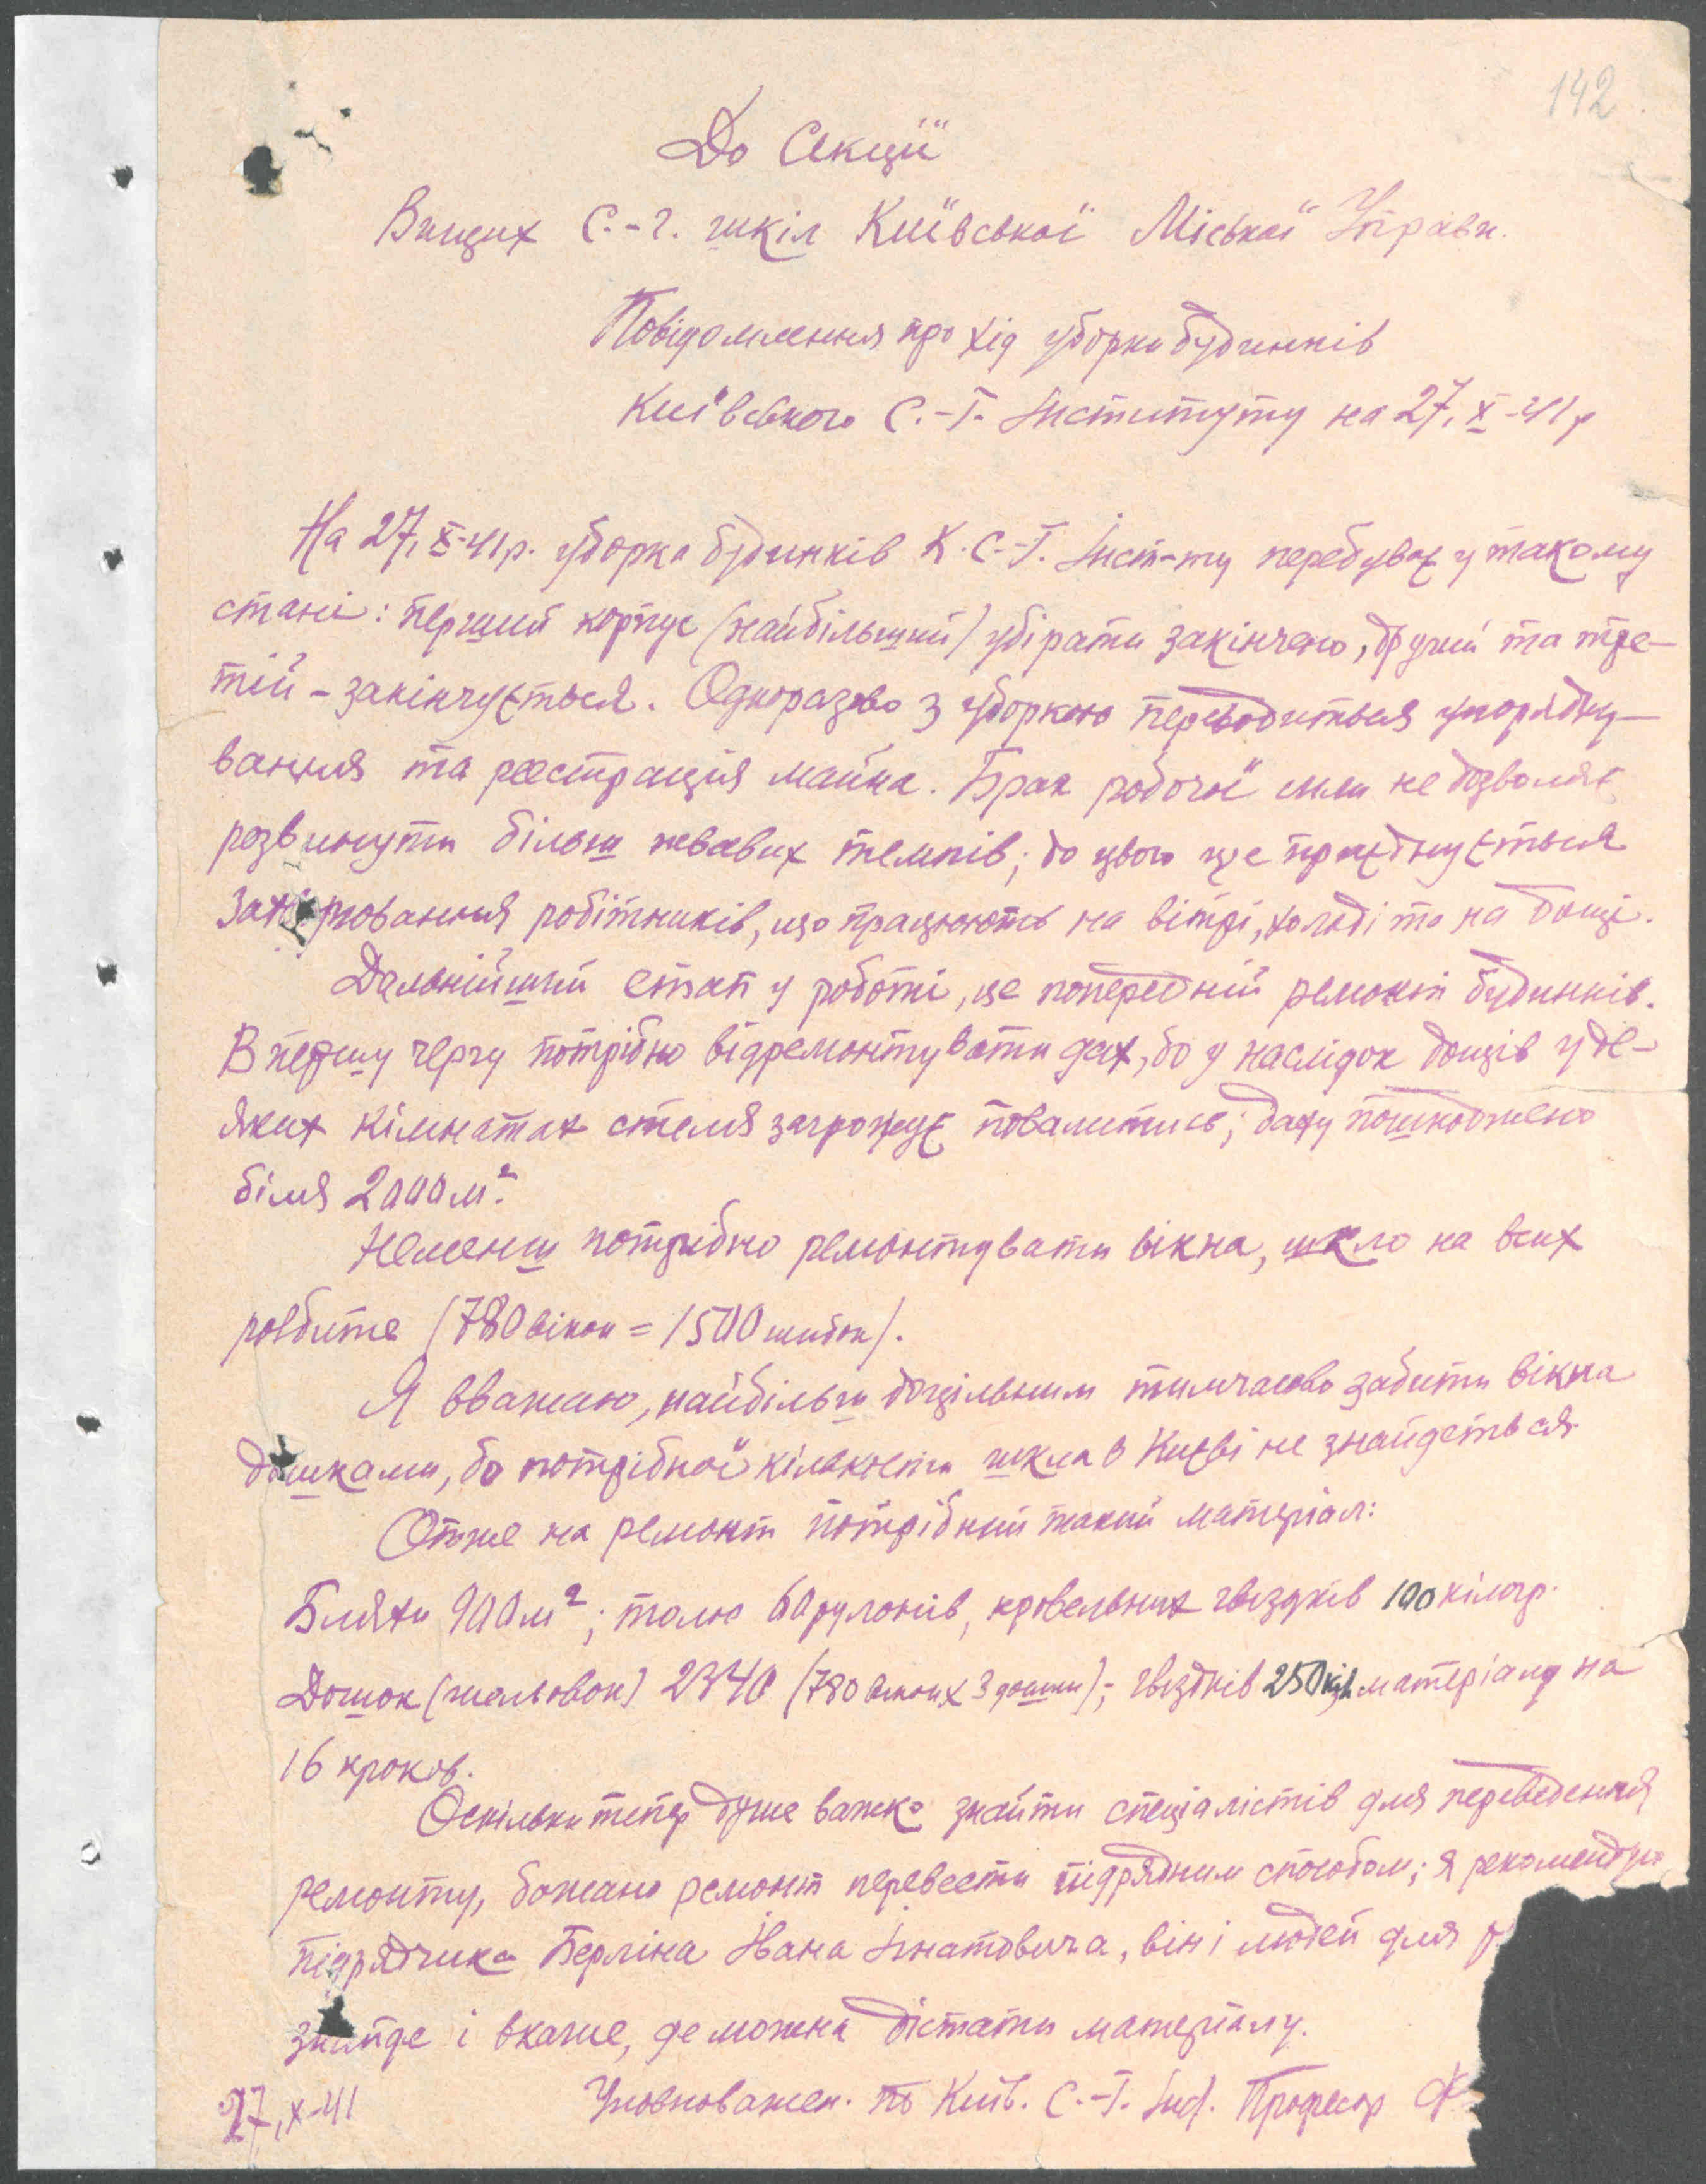 142
До Секції
Вищих С.-г. шкіл Київської Міської Управи.
Повідомлення про хід уборки будинків
Київського С.-Г. Інституту на 27, X-41 р
На 27, X-41 р. уборка будинків К. С.-Г. Інст-ту перебуває у такому
стані: перший корпус (найбільший) убірати закінчено, другий та тре-
тій - закінчується. Одноразово з уборкою переводиться упорядку-
вання та реєстрація майна. Брак робочої сили не дозволяє
розвинути більш жвавих темпів; до цього ще приєднується
робітників, що працюють на вітрі, холоді та на дощі.
Дальнійший етап у роботі, це попередній ремонт будинків.
В першу чергу потрібно відремонтувати дах, бо у наслідок дощів у де-
яких кімнатах стеля загрожує повалитись; даху пошкоджено
біля 2000 м².
Неменш потрібно ремонтувати вікна, шкло на всих
розбите (780 вікон = 1500 шибок).
Я вважаю, найбільш доцільним тимчасово забити вікна
дошками, бо потрібної кількости шкла в Києві не знайдеться.
Отже на ремонт потрібний такий матеріал:
Бляхи 900 м²; толю 60 рулонів, кровельних гвіздків 100 кілогр.
Дошок (шельовок) 2340 (780 вікон х 3 дошки); гвіздків 250 кіл. матеріалу на
16 кроков.
Оскільки тепер дуже важко знайти спеціалістів для переведення
ремонту, бажано ремонт перевести підрядним способом; я рекомендую
підрядчика Берліна Івана Ігнатовича, він і людей для р
знайде і вкаже, де можна дістати матеріалу.
27, X-41 Уповноважен. по Київ. С.-Г. Інст. Професор Ф